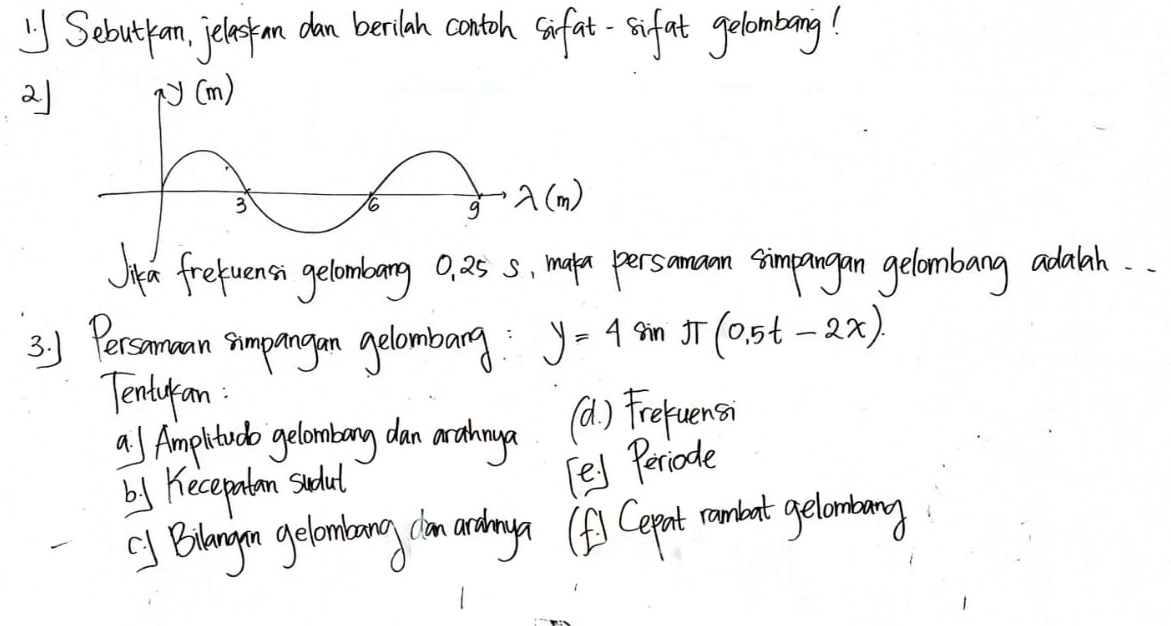 1.) Sebutkan, jelaskan dan berilah contoh sifat - sifat gelombang!
2.)
y (m)
3 6 9 λ (m)
Jika frekuensi gelombang 0,25 s, maka persamaan simpangan gelombang adalah ...
3.) Persamaan simpangan gelombang : y = 4 sin π (0,5t – 2x).
Tentukan :
a.) Amplitudo gelombang dan arahnya
b.) Kecepatan sudut
c.) Bilangan gelombang dan arahnya
(d.) Frekuensi
[e.) Periode
(f.) Cepat rambat gelombang